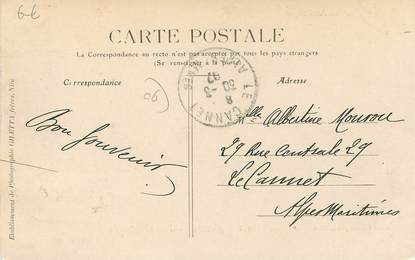 6-E
CARTE POSTALE
La Correspondance au recto n'est pas acceptée par tous pays étrangers
(Se renseigner à la poste)
Correspondance
Adresse
LE CANNET
90
Bon Souvenir
Mlle Albertine Mourou
29 Rue Centrale 29
Le Cannet
Alpes Maritimes
Etablissement de Photographie GILETTA frères, Nice